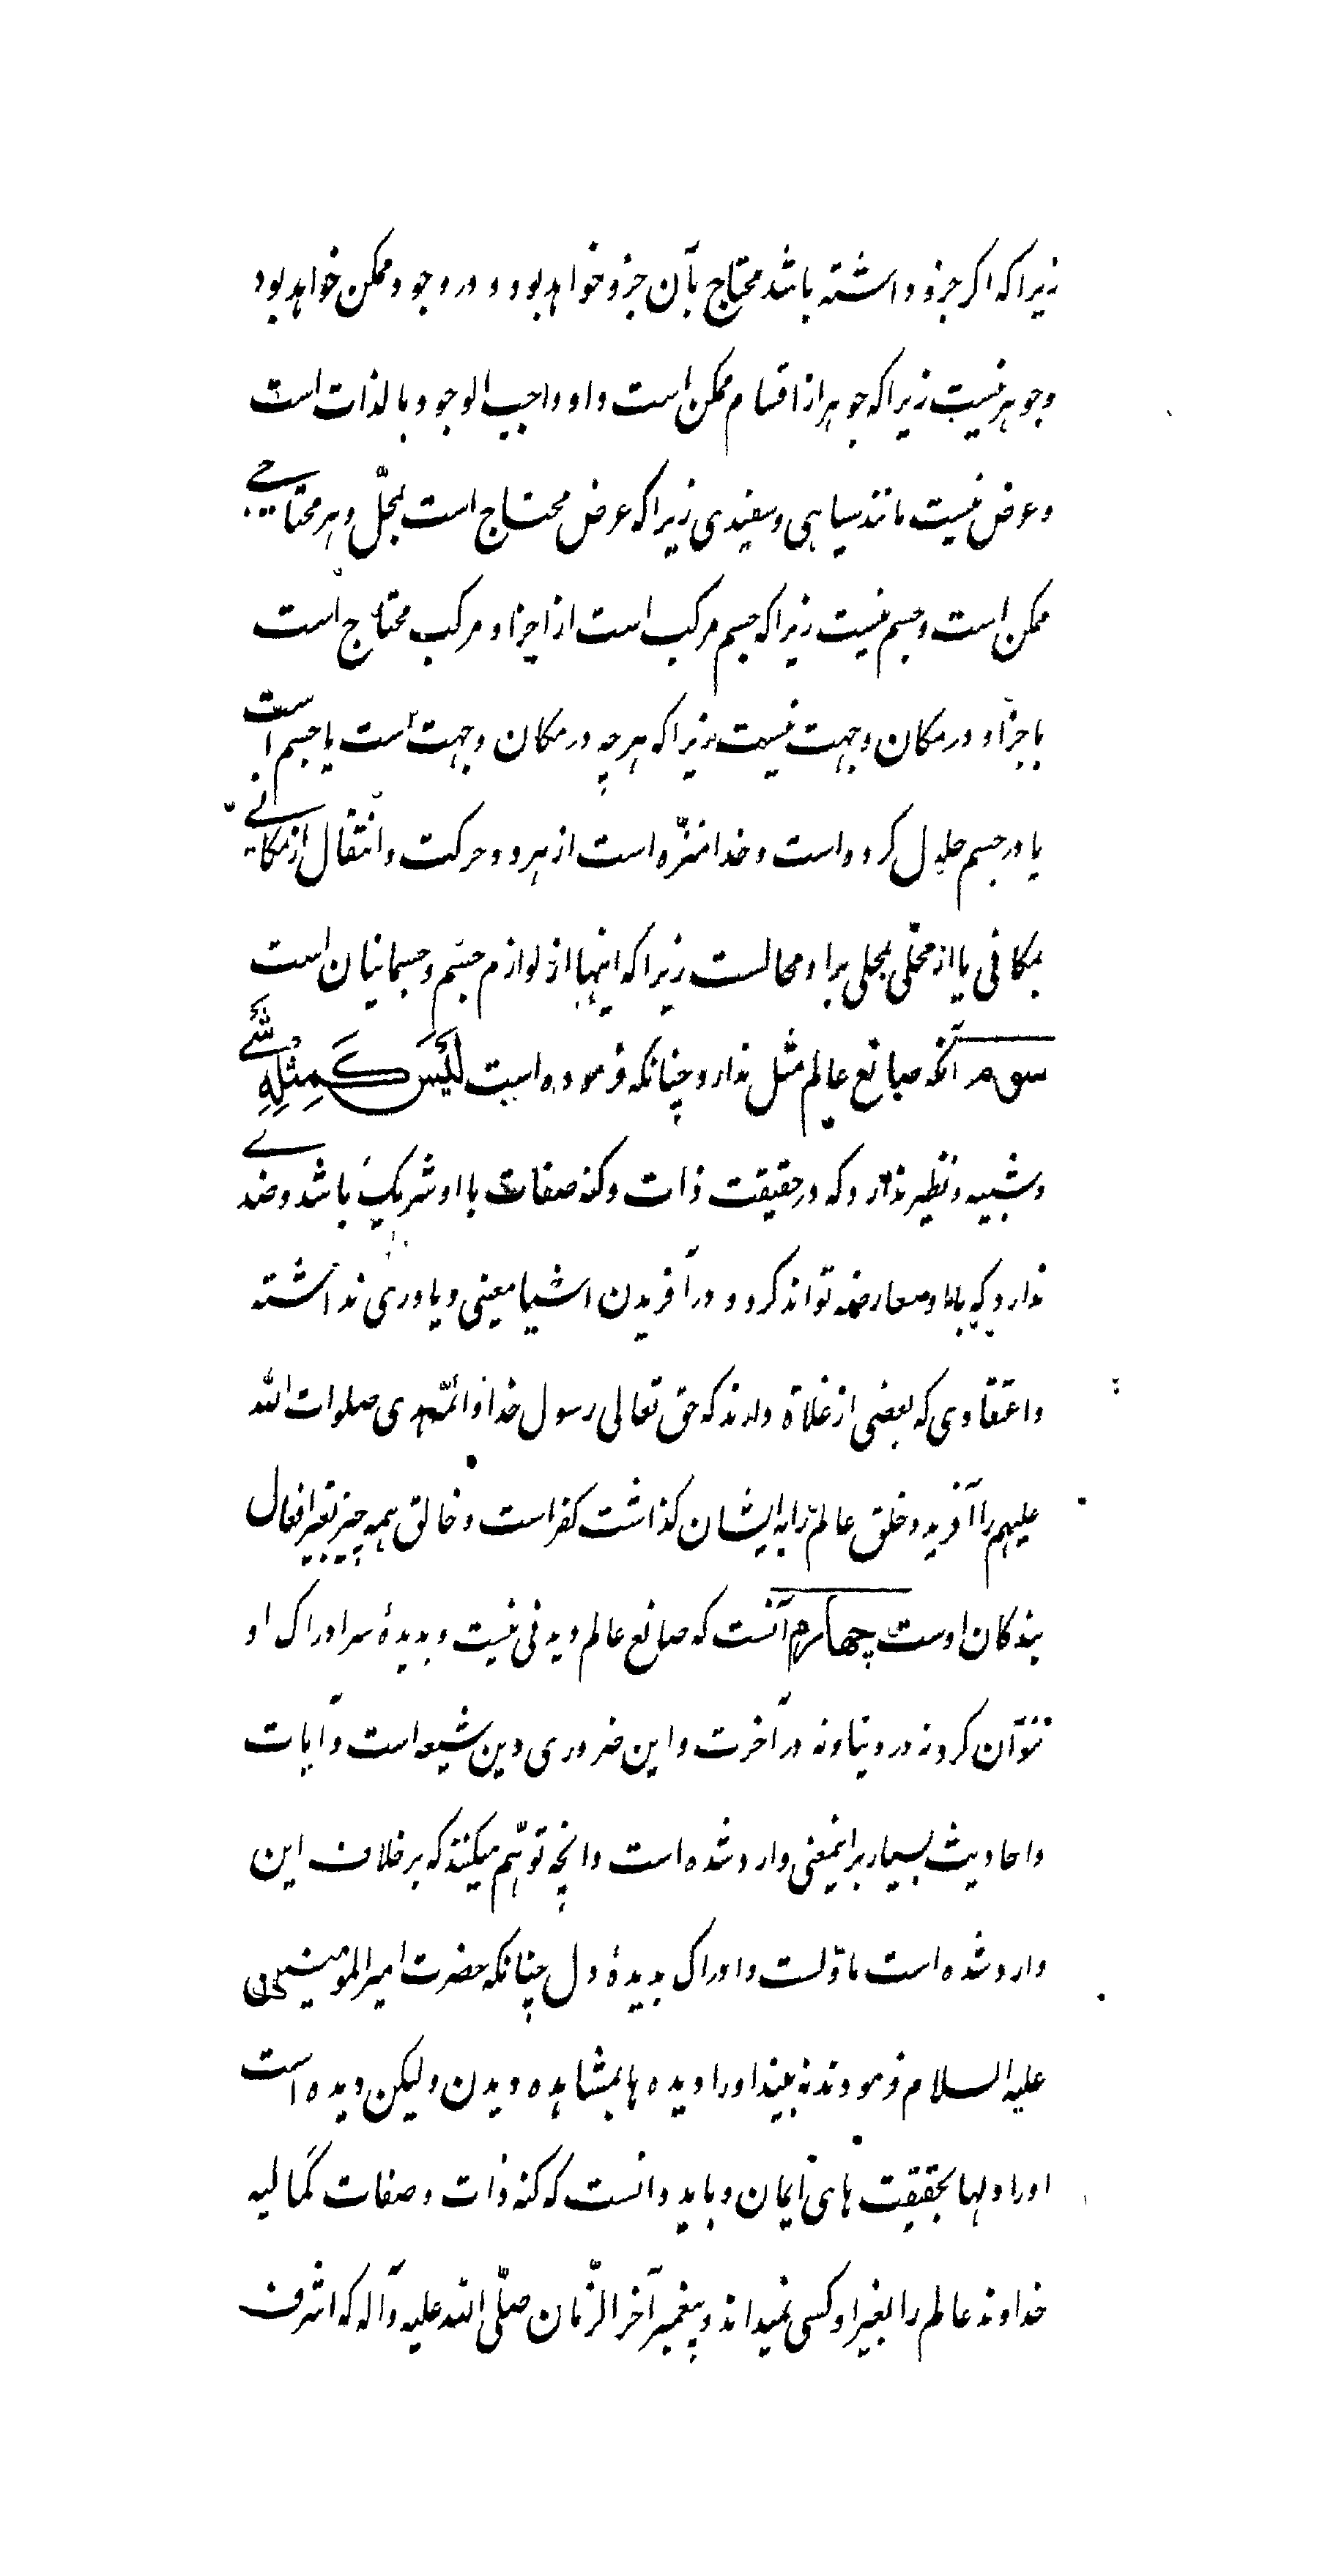 زیرا که اکر جزو داشته باشد محتاج بآن جزو خواهد بود و در وجود ممکن خواهد بود
وجوهر نیست زیرا که جوهر از اقسام ممکن است و او واجب الوجود بالذات است
و عرض نیست مانند سیاهی و سفیدی زیرا که عرض محتاج است بمحلّ و هر محتاجی
ممکن است و جسم نیست زیرا که جسم مرکب است از اجزا و مرکب محتاج است
باجزا و در مکان و جهت نیست زیرا که هرچه در مکان و جهت است یا جسم است
یا در جسم حلول کرده است و خدا منزّه است از هر دو و حرکت و انتقال از مکانی
بمکانی یا از محلّی بمحلی بر او محالست زیرا که اینها از لوازم جسم و جسمانیان است
سوم آنکه صانع عالم مثل ندارد چنانکه فرموده است لَیْسَ کَمِثْلِهِ شَیْءٌ
و شبیه و نظیر ندارد که در حقیقت ذات و کنه صفات با او شریک باشد و ضدی
ندارد که با او معارضه تواند کرد و در آفریدن اشیا معینی و یاوری نداشته
و اعتقادی که بعضی از غلاة دارند که حق تعالی رسول خدا و ائمّه هدی صلوات الله
علیهم را آفرید و خلق عالم را به ایشان کذاشت کفر است و خالق همه چیز بغیر افعال
بندکان اوست چهارم آنست که صانع عالم دیدنی نیست و بدیدۀ سر ادراک او
نتوآن کرد نه در دنیا و نه در آخرت و این ضروری دین شیعه است و آیات
و احادیث بسیار بر اینمعنی وارد شده است و انچه توهّم میکنند که بر خلاف این
وارد شده است ماوّلست و ادراک بدیدۀ دل چنانکه حضرت امیر المومنین
علیه السلام فرمودند نه بیند او را دیده ها بمشاهده دیدن و لیکن دیده است
او را دلها بحقیقت های ایمان و باید دانست که کنه ذات و صفات کمالیه
خداوند عالم را بغیر او کسی نمیداند و پیغمبر آخر الزّمان صلّی الله علیه و آله که اشرف